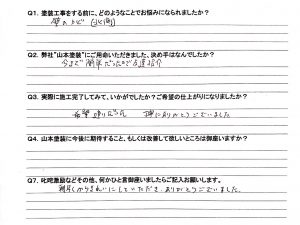 Q1. 塗装工事をする前に、どのようなことでお悩みになられましたか？
壁のカビ（北側）
Q2. 弊社"山本塗装"にご用命いただきました、決め手はなんでしたか？
Q3. 実際に施工完了してみて、いかがでしたか？ご希望の仕上がりになりましたか？
希望通りです。ありがとうございました
Q4. 山本塗装に今後に期待すること、もしくは改善して欲しいところは御座いますか？
Q7. 叱咤激励などその他、何かひと言御座いましたらご記入お願いします。
きれいにしていただき、ありがとうございました。